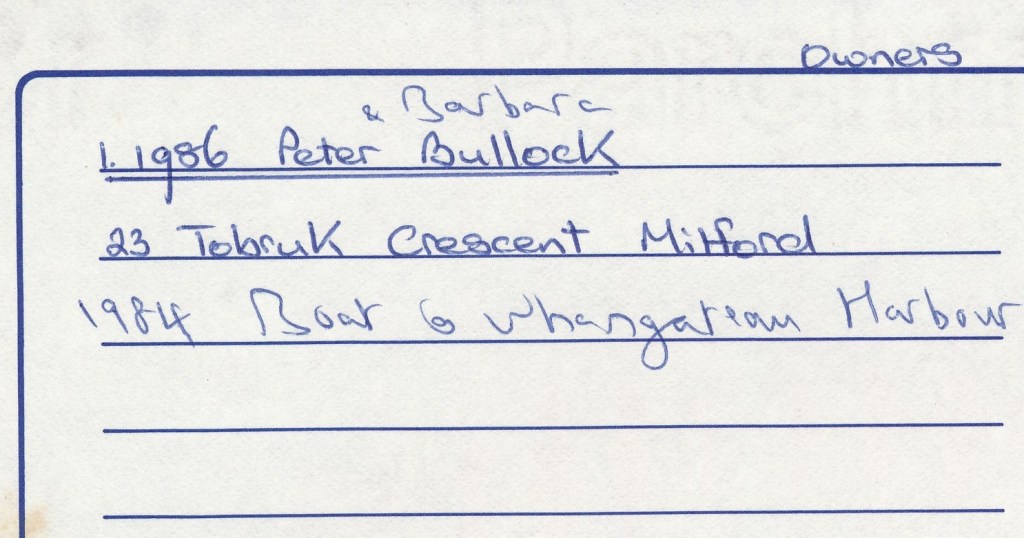 Owners
& Barbara
1. 1986 Peter Bullock
23 Tobruk Crescent Milford
1984 Boat @ Whangateau Harbour